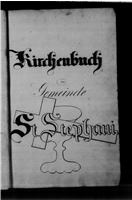 Kirchenbuch
Gemeinde
St. Stephani,